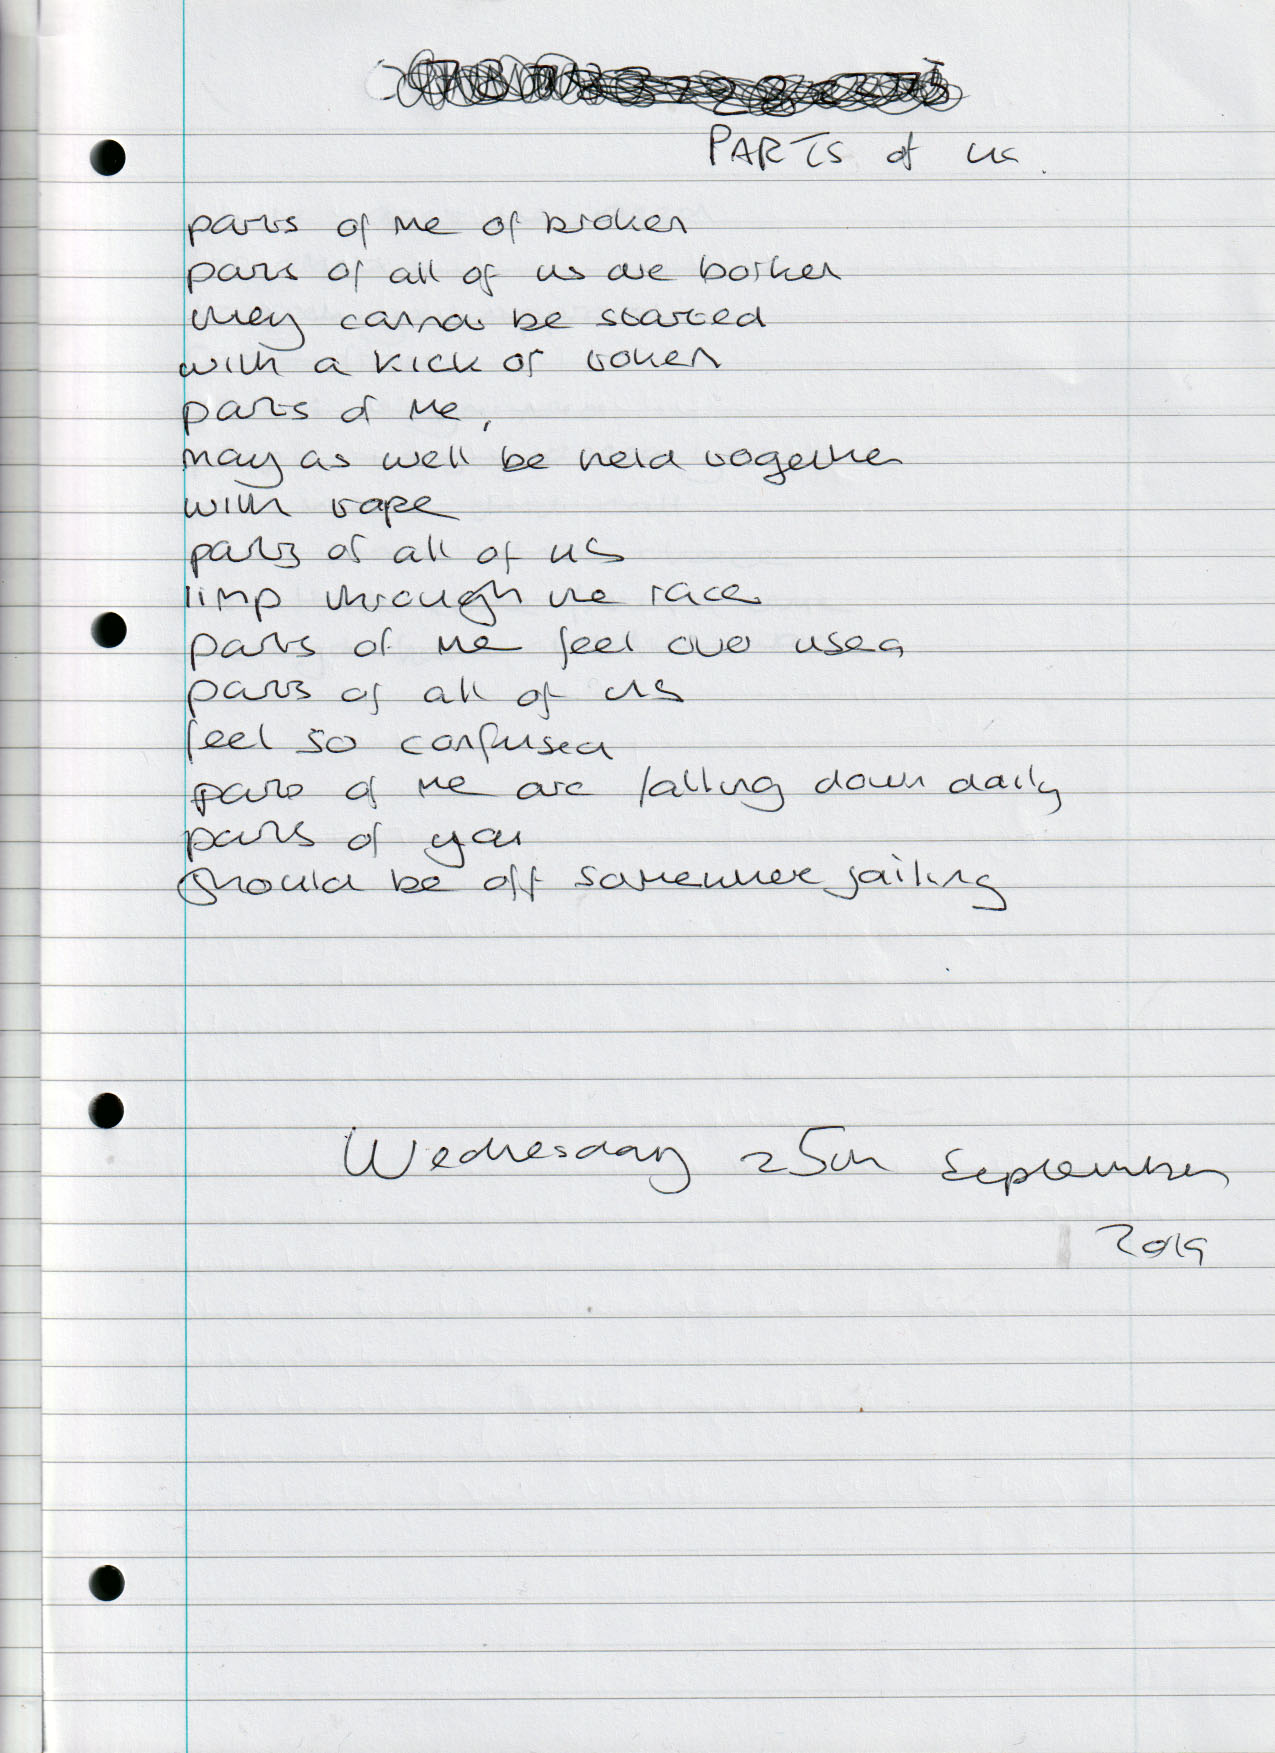 PARTS of us.
parts of me of broken
parts of all of us are borken
they cannot be started
with a kick or token
parts of me,
may as well be held together
with tape
parts of all of us
limp through the race
parts of me feel over used
parts of all of us
feel so confused
parts of me are falling down daily
parts of you
should be off somewhere sailing
Wednesday 25th September
2019